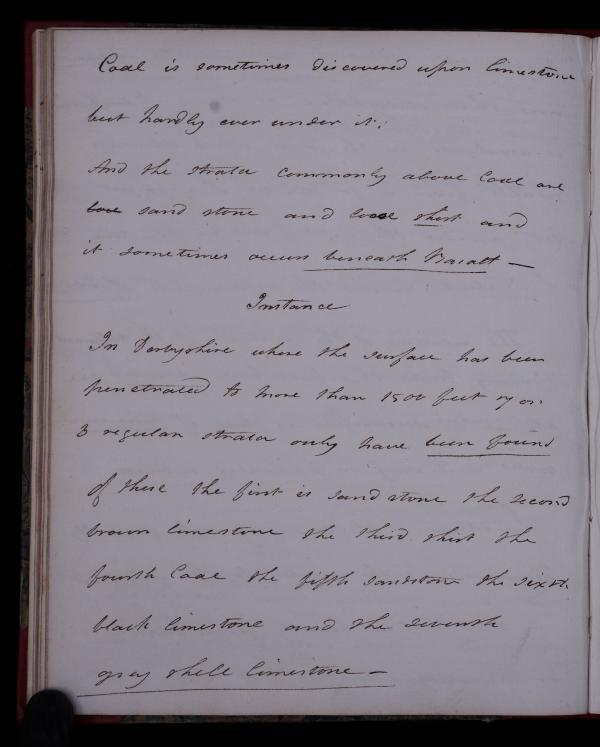 Coal is sometimes discovered upon limestone
but hardly ever under it:
And the strata commonly above Coal are
sand stone and loose shist and
it sometimes occurs beneath Basalt —
Instance
In Derbyshire where the surface has been
penetrated to more than 1500 feet 7 or
8 regular strata only have been found
Of these the first is sand stone the second
brown limestone the third shist the
fourth Coal the fifth sandstone the sixth
black limestone and the seventh
gray shell limestone —